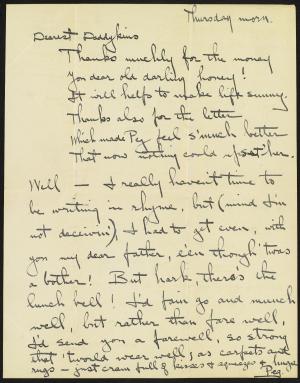 Thursday morn.
Dearest Daddykins
Thanks muchly for the money
You dear old darling honey!
It will helps to make life sunny.
Thanks also for the letter
Which made Peg feel s'much better
That now nothing could upset her.
Well — I really haven't time to
be writing in rhyme, but (mind I'm
not deceivin'), I had to get even, with
you my dear father, e'en though 'twas
a bother! But hark, there's the
lunch bell! I'd fain go and munch
well, but rather than fare well,
I'd send you a farewell, so strong
that 'twould wear well; as carpets and
rugs — just cram full of kisses & squeezes & hugs
Peg.